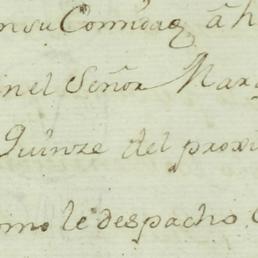 en su Comidaz á h
en el Señor Marq
Quinze del proxi
omo le despacho